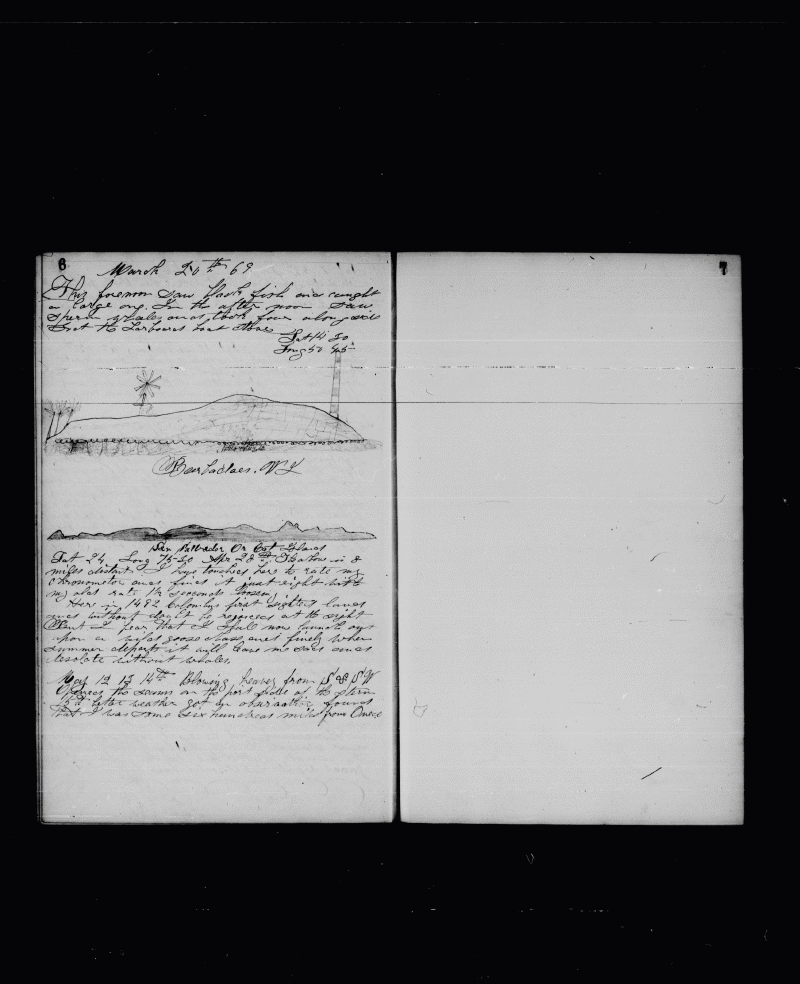 6
March 20th 69
This forenoon saw black fish and caught
a large one. In the after noon saw
sperm whales and took four along side
the Larboard boat stove
Lat 14 20
Long 50 45
Barbadoes. W I
San Salvador Or Cat Island
Lat 24 Long 75-30 Apr 28th
miles distant I have touched here to rate my
chronometer and find it just right with
my old rate 1½ seconds loosing
Here in 1492 Columbus first sighted land
and without doubt he rejoiced at the sight
But I fear that I shall now launch out
upon a wild goose chase and finely when
summer departs it will leave me sad and
desolate without whales.
May 12 13 14th Blowing heavy from S & SW
Opened the seams on the port side of the stern
15th better weather got an observation found
that I was some six hundred miles from
7